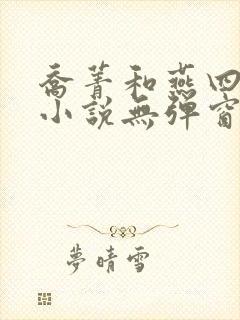 喬菁和燕四
小說無彈窗
夢晴雪